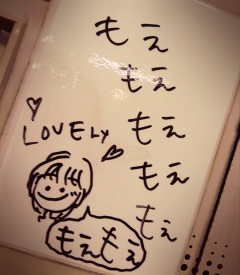 もえ
もえ
LOVELY
もえ
もえ
もえ
もえもえ